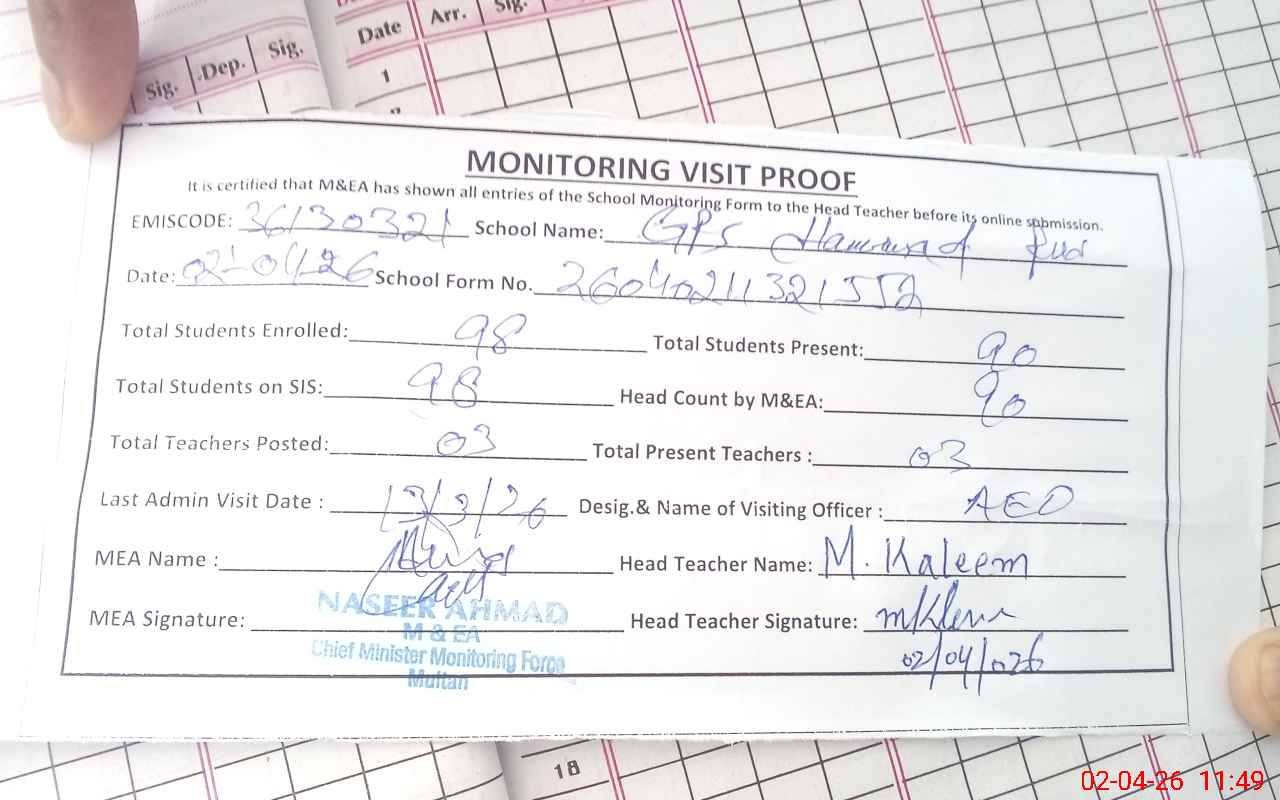 Date Arr. Sig.
Sig. Dep. Sig.
1
MONITORING VISIT PROOF
It is certified that M&EA has shown all entries of the School Monitoring Form to the Head Teacher before its online submission.
EMISCODE: 36130321 School Name: GPS
Date: 02-04-26 School Form No. 2604021132155
Total Students Enrolled: 98 Total Students Present: 90
Total Students on SIS: 98 Head Count by M&EA: 90
Total Teachers Posted: 03 Total Present Teachers : 03
Last Admin Visit Date : 13/3/26 Desig.& Name of Visiting Officer : AEO
MEA Name : Head Teacher Name: M. Kaleem
MEA Signature: Head Teacher Signature:
NASEER AHMAD
M & EA
Chief Minister Monitoring Force
Multan
02/04/026
18
02-04-26 11:49